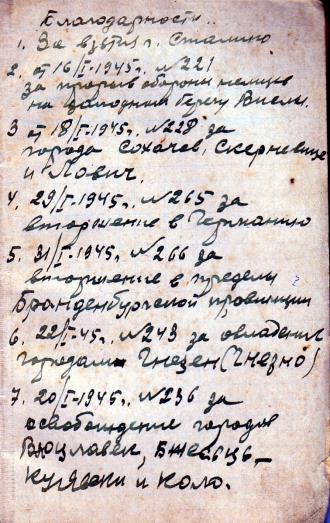 Благодарности..
1. За взятие г. Сталино
2. от 16/I-1945г. №221
за прорыв обороны немцев
на западном берегу Вислы.
3 от 18/I-1945г. №228 за
города Сохачев, Скерневице
и Лович.
4. 29/I-1945г. №265 за
вторжение в Германию
5. 31/I-1945г. №266 за
вторжение в пределы
Бранденбургской провинции
6. 22/I-45г. №243 за овладение
городам Гнезен (Гнезно)
7. 20/I-1945г. №236 за
освобождение городов
Влоцлавек, Бжесць-
Куявски и Коло.